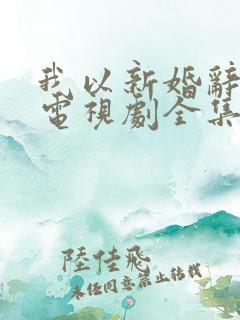 我以新婚辭
電視劇全集
陸佳飛
未經同意禁止轉載